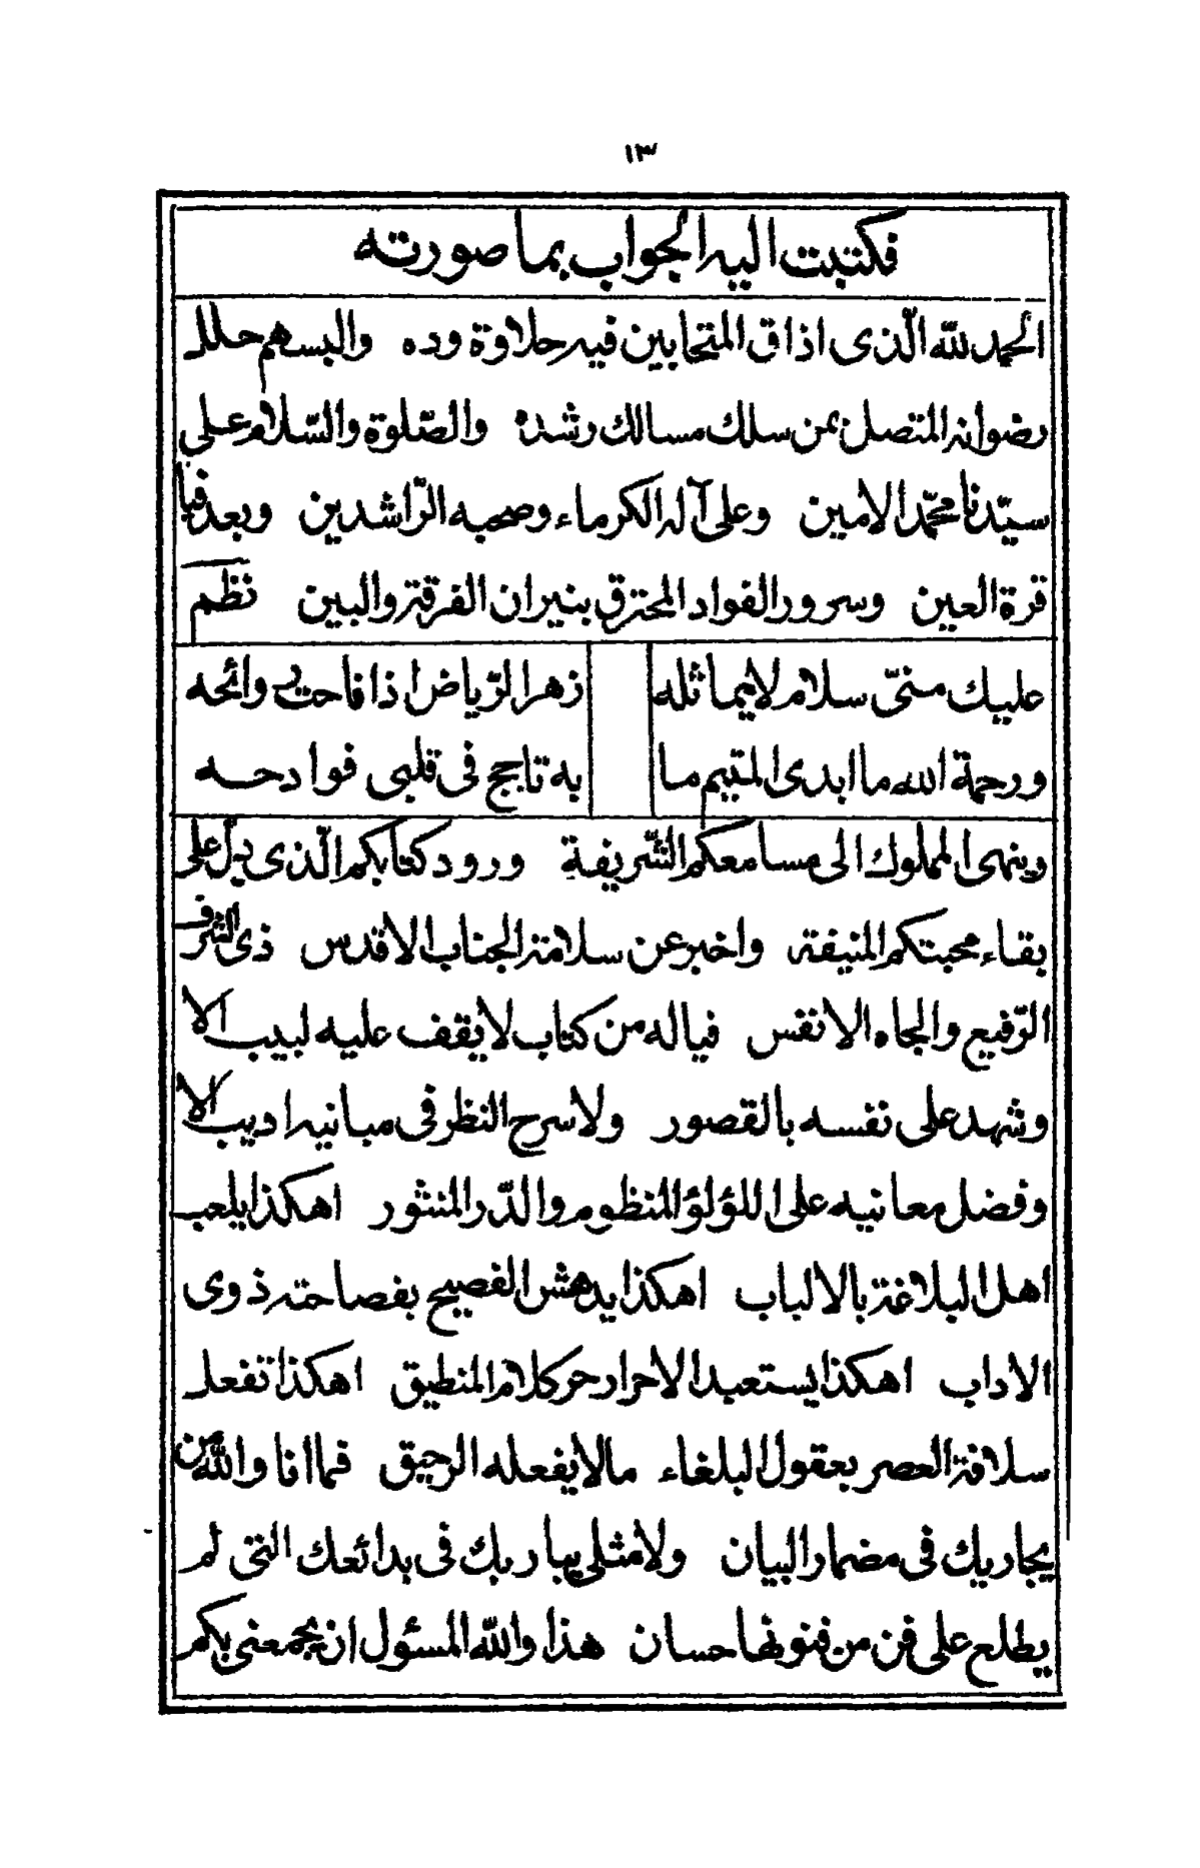 ١٣
فكتبت اليه الجواب بما صورته
الحمد لله الّذى اذاق المتحابين فيه حلاوة وده والبسهم حلل
رضوانه المتصل بمن سلك مسالك رشده والصّلوة والسّلام على
سيّدنا محمّد الامين وعلى آله الكرماء وصحبه الرّاشدين وبعد فيا
قرة العين وسرور الفواد المحترق بنيران الفرقة والبين نظم
عليك منىّ سلام لا يماثله زهر الرّياض اذا فاحت روائحه
ورحمة الله ما ابدى المتيم ما به تاجج فى قلبى فوادحه
وينهى المملوك الى مسامعكم الشّريفة ورود كتابكم الّذى يدلّ على
بقاء محبتكم المنيفة واخبر عن سلامة الجناب الاقدس ذى الشرف
الرّفيع والجاه الانفس فياله من كتاب لا يقف عليه لبيب الا
وشهد على نفسه بالقصور ولا سرح النظر فى مبانيه اديب الا
وفضل معانيه على اللؤلؤ المنظوم والدّر المنثور اهكذا يلعب
اهل البلاغة بالالباب اهكذا يدهش الفصيح بفصاحته ذوى
الاداب اهكذا يستعبد الاحرار حر كلام المنطيق اهكذا تفعل
سلافة العصر بعقول البلغاء مالا يفعله الرحيق فما انا والله من
يجاريك فى مضمار البيان ولا مثلى يباريك فى بدائعك التى لم
يطلع على فن من فنونها حسان هذا والله المسئول ان يجمعنى بكم